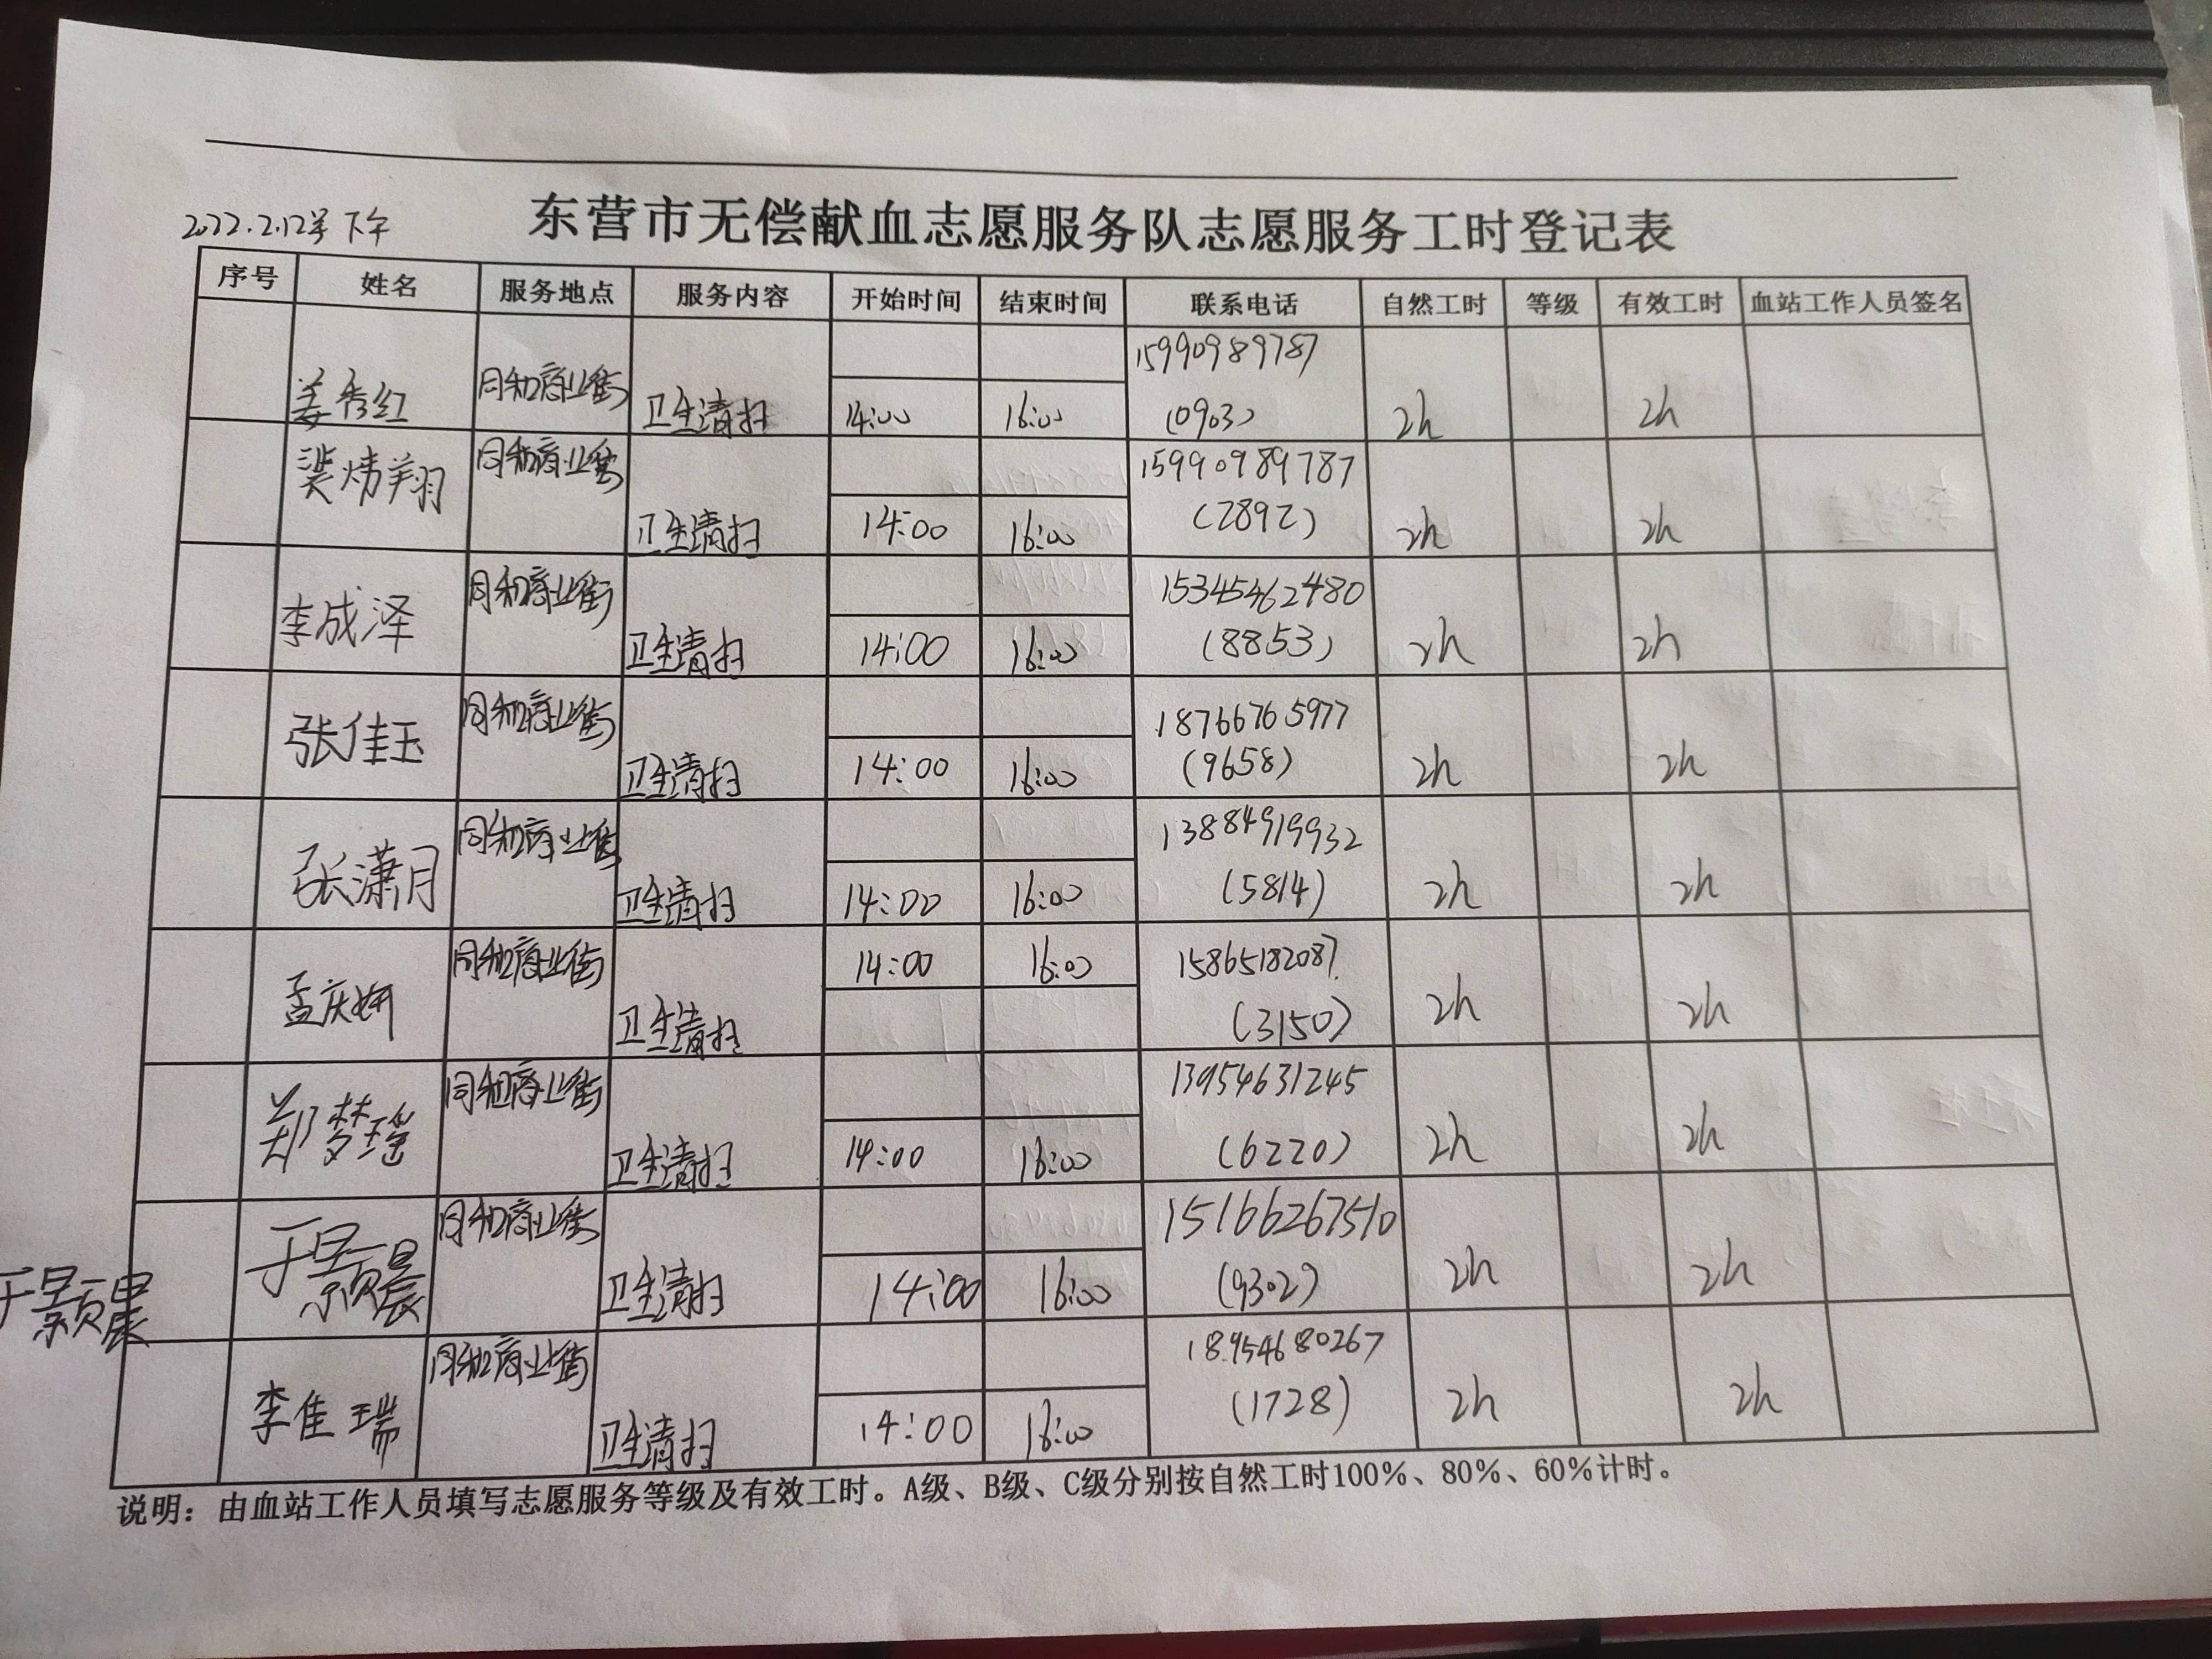 2022.2.12号 下午
东营市无偿献血志愿服务队志愿服务工时登记表
序号 姓名 服务地点 服务内容 开始时间 结束时间 联系电话 自然工时 等级 有效工时 血站工作人员签名
姜秀红 同和商业街 卫生清扫 14:00 16:00 15990989787 (0903) 2h 2h
裴炜翔 同和商业街 卫生清扫 14:00 16:00 15990989787 (2892) 2h 2h
李成泽 同和商业街 卫生清扫 14:00 16:00 15345462480 (8853) 2h 2h
张佳玉 同和商业街 卫生清扫 14:00 16:00 18766765977 (9658) 2h 2h
张潇月 同和商业街 卫生清扫 14:00 16:00 13884919932 (5814) 2h 2h
孟庆妍 同和商业街 卫生清扫 14:00 16:00 15865182087 (3150) 2h 2h
郑梦瑶 同和商业街 卫生清扫 14:00 16:00 13954631245 (6220) 2h 2h
于景颢晨 于景颢晨 同和商业街 卫生清扫 14:00 16:00 15166267510 (9302) 2h 2h
李佳瑞 同和商业街 卫生清扫 14:00 16:00 18954680267 (1728) 2h 2h
说明：由血站工作人员填写志愿服务等级及有效工时。A级、B级、C级分别按自然工时100%、80%、60%计时。